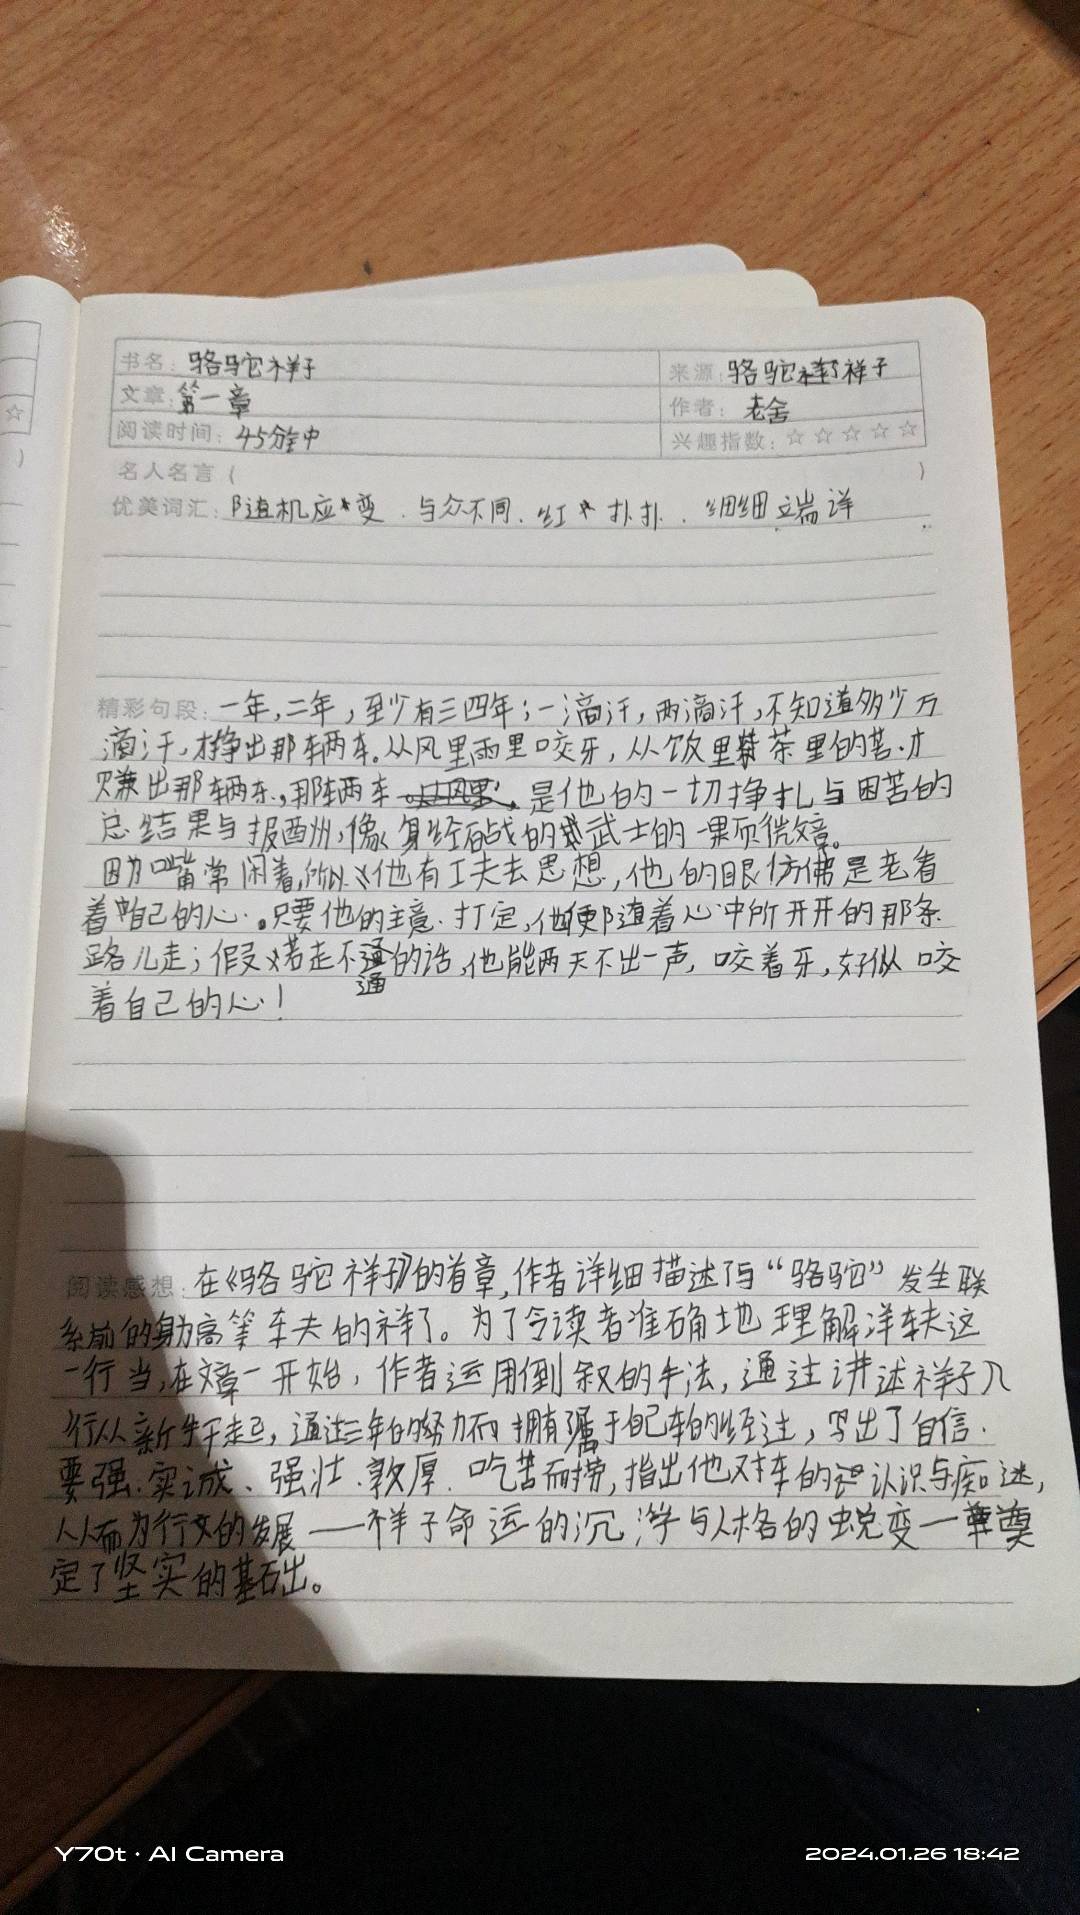 书名：骆驼祥子 来源：骆驼祥子
文章：第一章 作者：老舍
阅读时间：45分钟 兴趣指数：☆☆☆☆☆
名人名言（ ）
优美词汇：随机应变、与众不同、红扑扑、细细端详
精彩句段：一年，二年，至少有三四年；一滴汗，两滴汗，不知道多少万
滴汗，才挣出那辆车。从风里雨里咬牙，从饭里茶里的苦，才
赚出那辆车，那辆车是他的一切挣扎与困苦的
总结果与报酬，像身经百战的武士的一颗徽章。
因为嘴常闲着，所以他有工夫去思想，他的眼仿佛是老看
着自己的心。只要他的主意打定，他便随着心中所开开的那条
路儿走；假若走不通的话，他能两天不出一声，咬着牙，好似咬
着自己的心！
阅读感想：在《骆驼祥子》的首章，作者详细描述了与“骆驼”发生联
系前的身为高等车夫的祥子。为了令读者准确地理解洋车夫这
一行当，在文章一开始，作者运用倒叙的手法，通过讲述祥子入
行从新手干起，通过三年的努力而拥有属于自己车的经过，写出了自信、
要强、实诚、强壮、敦厚、吃苦而耐劳，指出他对车的认识与痴迷，
从而为行文的发展——祥子命运的沉浮与人格的蜕变—奠
定了坚实的基础。
Y70t · AI Camera 2024.01.26 18:42